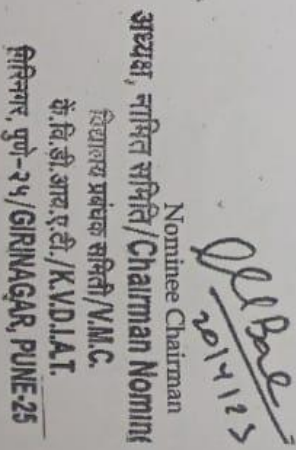 20/4/23
Nominee Chairman
अध्यक्ष, नामित समिति/Chairman Nomine
विद्यालय प्रबंधक समिती/V.M.C.
कें.वि.डी.आय.ए.टी./K.V.D.I.A.T.
गिरिनगर, पुणे-२५/GIRINAGAR, PUNE-25